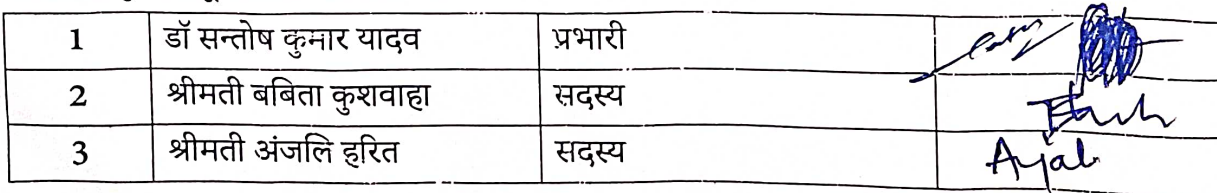 1 डॉ सन्तोष कुमार यादव प्रभारी
2 श्रीमती बबिता कुशवाहा सदस्य
3 श्रीमती अंजलि हरित सदस्य